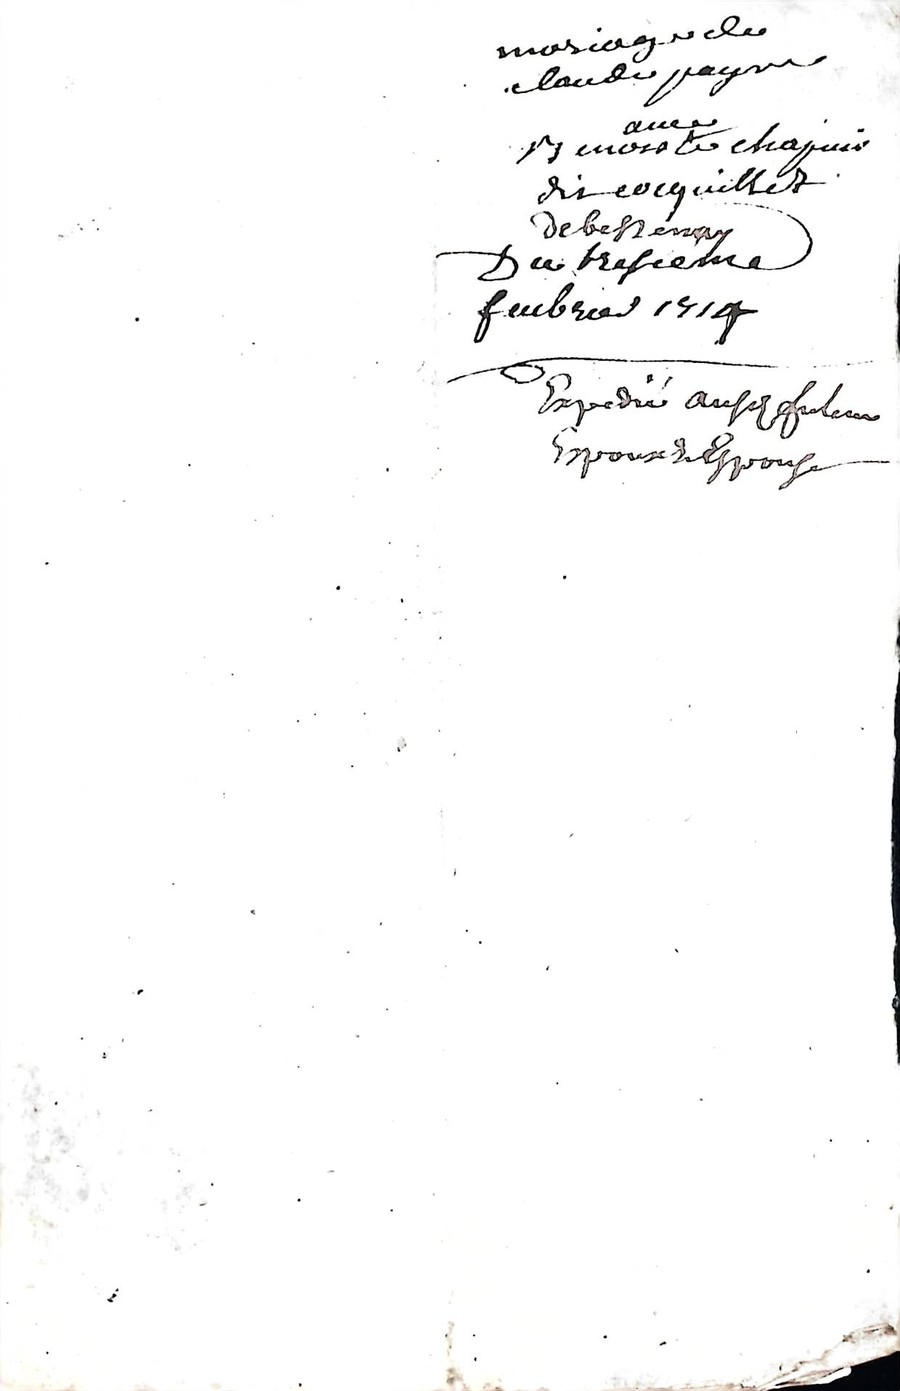 mariage de
claude payre
avec
Benoiste chapuis
dit cocquillet
de bessenay
Du treſieme
feubrier 1714
Expedié aux futeur
Espoux & Espouse